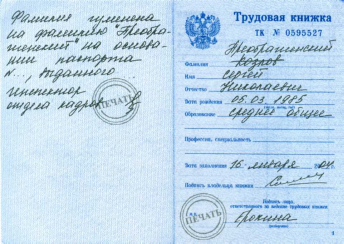 Фамилия изменена
на фамилию "Преобра-
женский" на основа-
нии паспорта
№..., выданного
инспектор
отдела кадров
ПЕЧАТЬ
Трудовая книжка
ТК № 0595527
Преображенский
Фамилия Козлов
Имя Сергей
Отчество Николаевич
Дата рождения 05.03.1985
Образование среднее общее
Профессия, специальность
Дата заполнения 16 января 04г.
Подпись владельца книжки
Подпись лица,
ответственного за ведение трудовых книжек
ПЕЧАТЬ
Ерохина